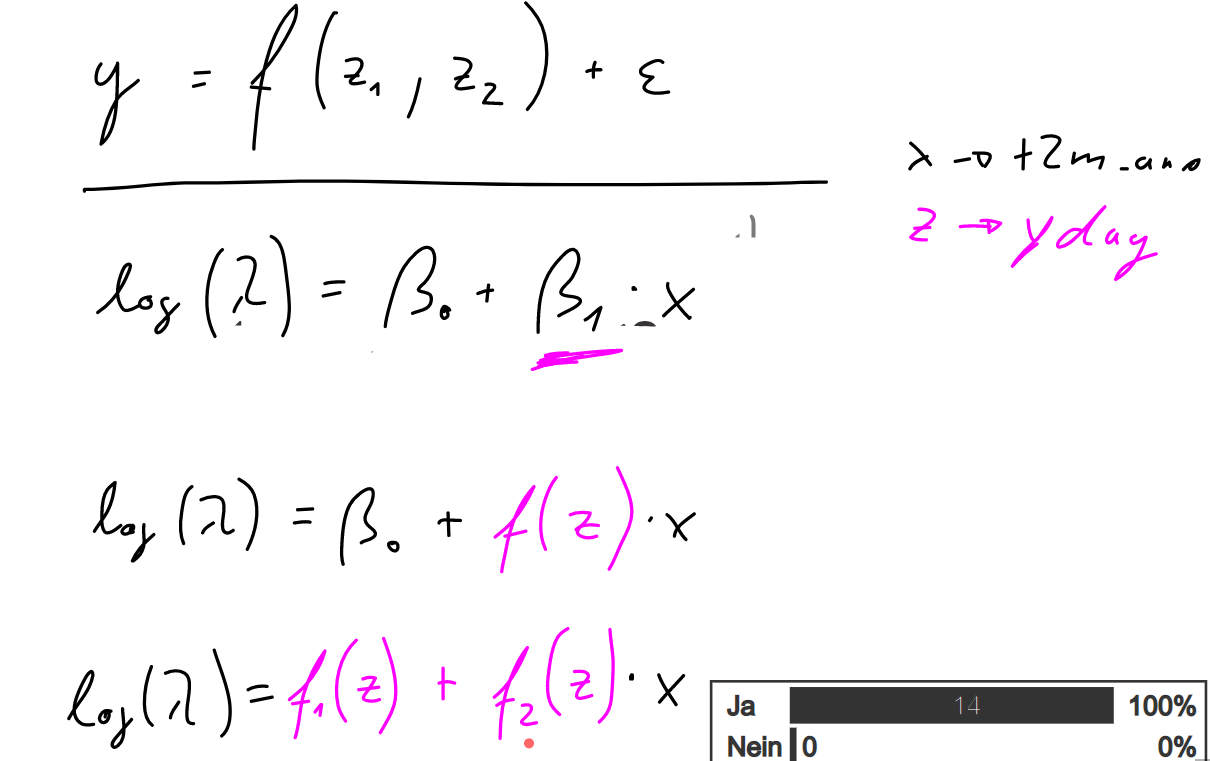 y = f(z₁, z₂) + ε
x → t2m_ano
z → yday
log(λ) = β₀ + β₁ · x
log(λ) = β₀ + f(z) · x
log(λ) = f₁(z) + f₂(z) · x
Ja 14 100%
Nein 0 0%